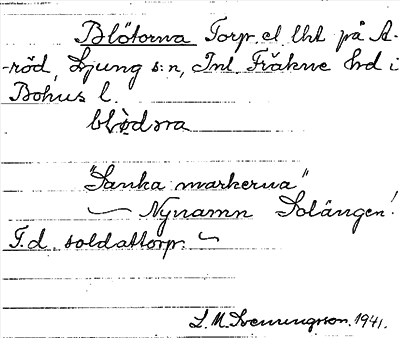 Blötorna Torp el. lht på A-
-röd, Ljung s:n, Inl. Fräkne hd i
Bohus l.
blødɔra
"Sanka markerna"
— Nynamn Solängen!
F.d. soldattorp. —
L.M. Svenungsson. 1941.